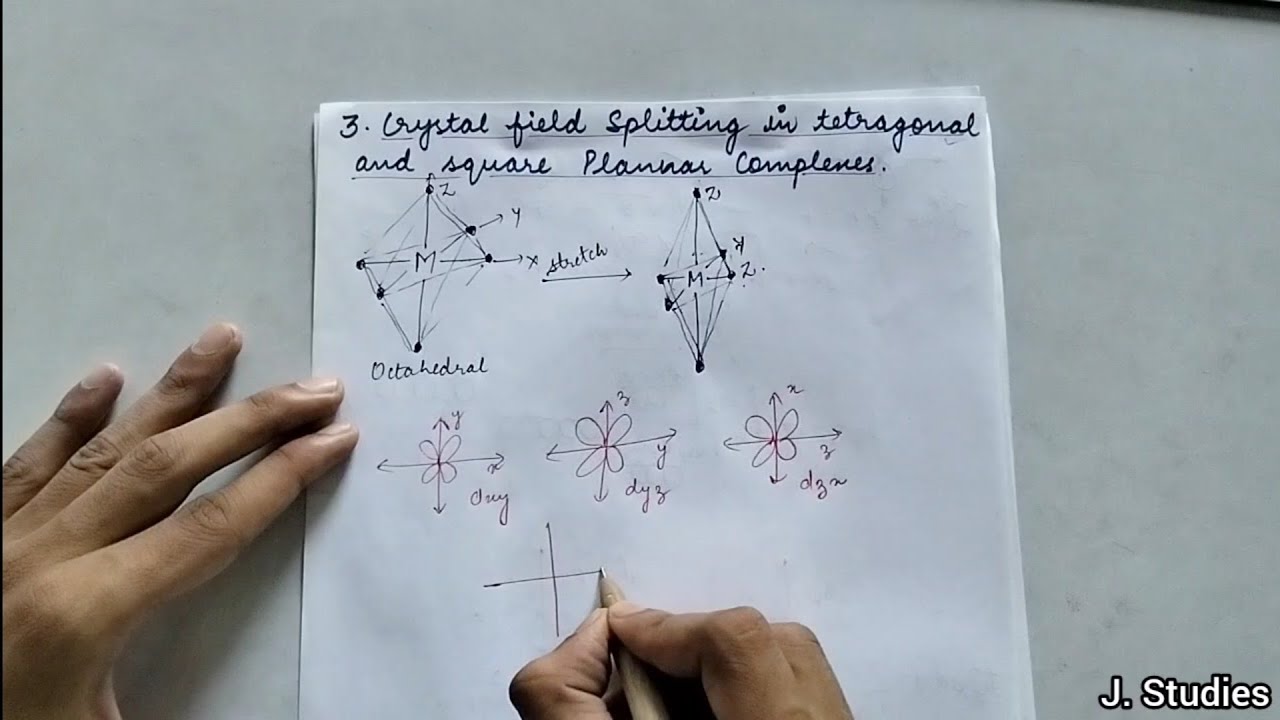 3. Crystal field Splitting in tetragonal
and square Plannar Complexes.
Z
Y
M
X
Octahedral
stretch
Z
Y
M
Z.
y
x
dxy
z
y
dyz
x
z
dzx
J. Studies